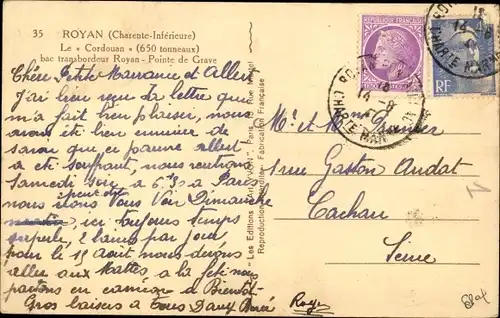 35 ROYAN (Charente-Inférieure)
Le « Cordouan » (650 tonneaux)
bac transbordeur Royan - Pointe de Grave
Chère Petite Marraine et Albert
J'ai bien reçu ta lettre qui
m'a fait bien plaisir, nous
avons été bien ennuier de
savoir que ce pauvre albert
a été souffrant, nous rentrons
Samedi soir a 6.30 a Paris
peut être
nous irons Vous Voir Dimanche
ici toujours temps
superbe, 2 bains par jour
pour le 15 Août nous devons
aller aux Mattes a la fête nous
partons en camion a Bientôt
Gros baisers a Tous Deux
Les Editions
Reproduction Interdite - Fabrication Française
POSTES
RF
Mr et Mme
rue Gaston Audat
Cachan
Seine